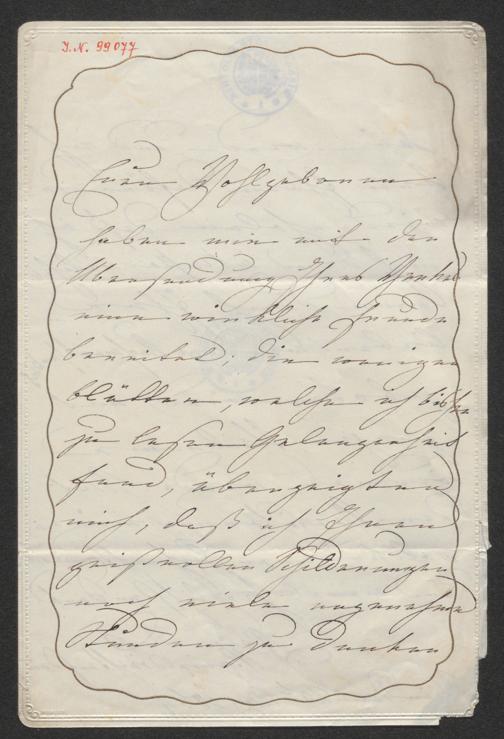 J. N. 99077
Euer Wohlgeboren
haben mir mit der
Übersendung Ihres Werkes
eine wirkliche Freude
bereitet; die wenigen
Blätter, welche ich bisher
zu lesen Gelegenheit
fand, überzeugten
mich, daß ich Ihren
geistvollen Schilderungen
noch viele angenehme
Stunden zu danken